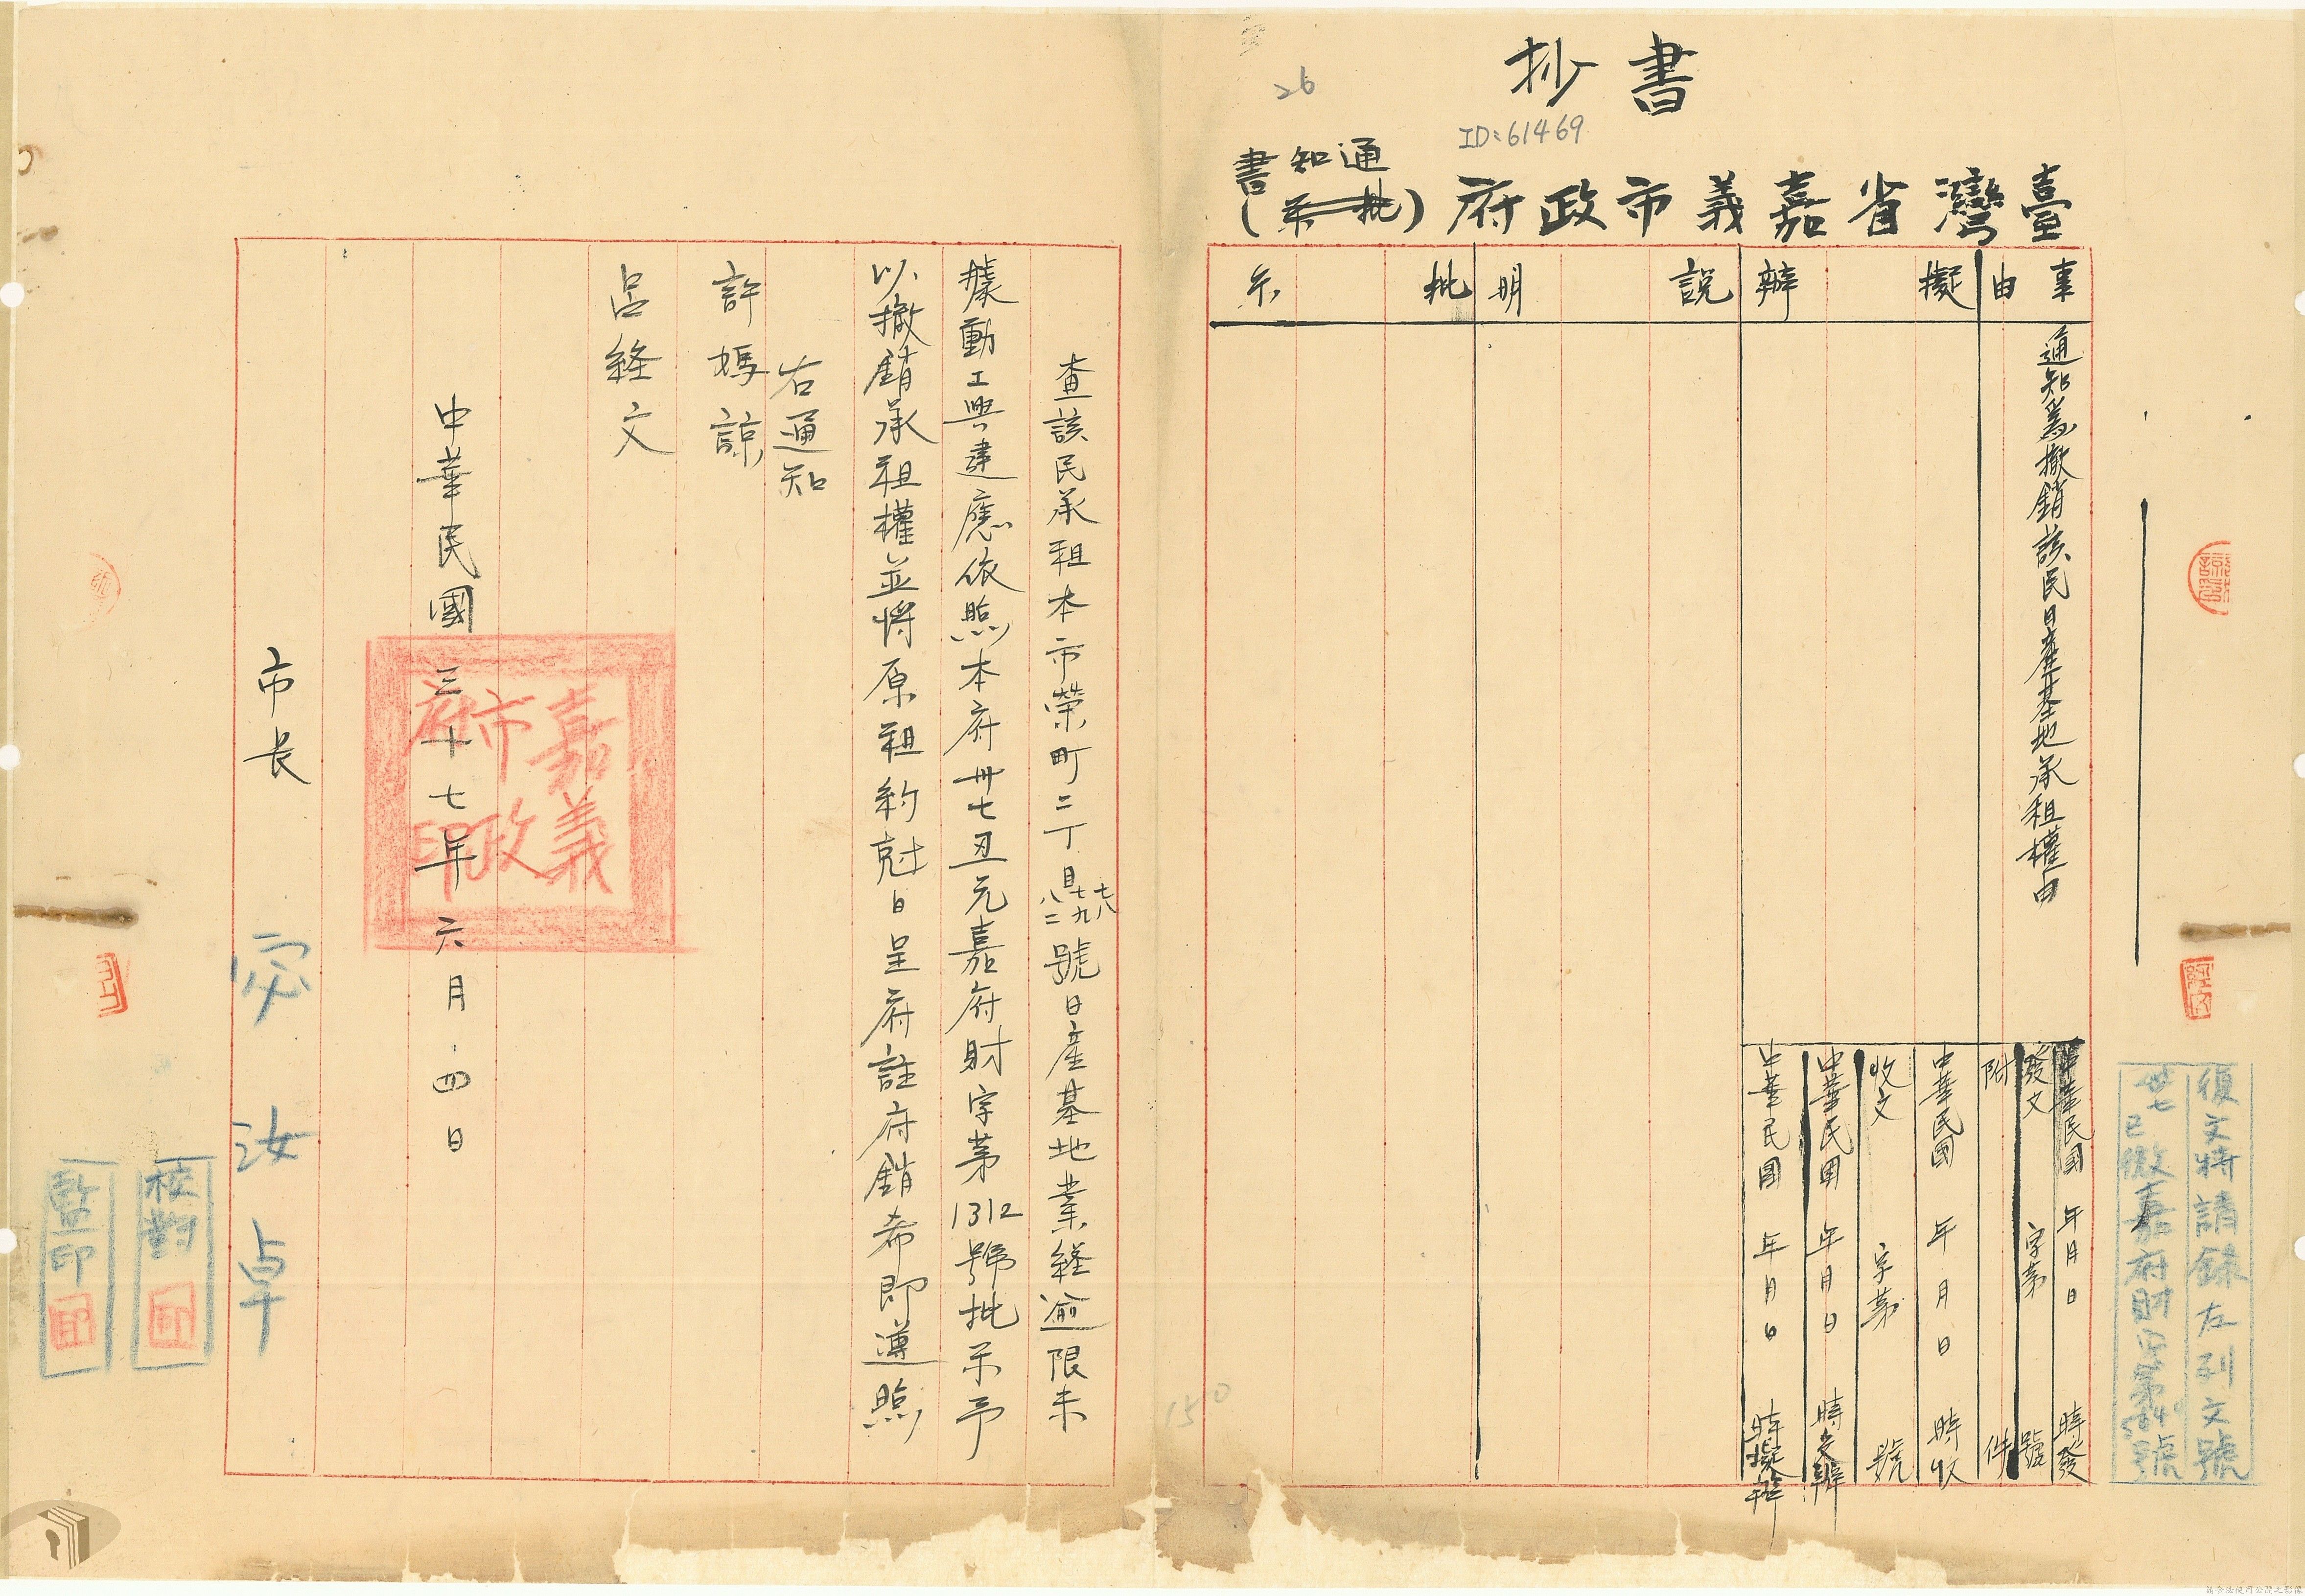 抄書
26
ID:61469
臺灣省嘉義市政府(批示)
通知書
事由
擬辦
說明
批示
通知爲撤銷該民日產基地承租權由
中華民國 年 月 日 時發
發文 字第 號
附 件
中華民國 年 月 日 時收
收文 字第 號
中華民國 年 月 日 時交辦
中華民國 年 月 日 時擬辦
復文時請錄左列文號
卅七 已 嘉府財 第 號
查該民承租本市榮町二丁目七八七九八二號日產基地業経逾限未
據動工興建應依照本府卅七丑元嘉府財字第1312號批示予
以撤銷承租權並將原租約尅日呈府註府銷希即遵照
右通知
許媽諒
呂経文
中華民國三十七年六月四日
嘉義市政府印
市長 宓汝卓
校對 印
監印 印
150
経文
請合法使用公開之影像